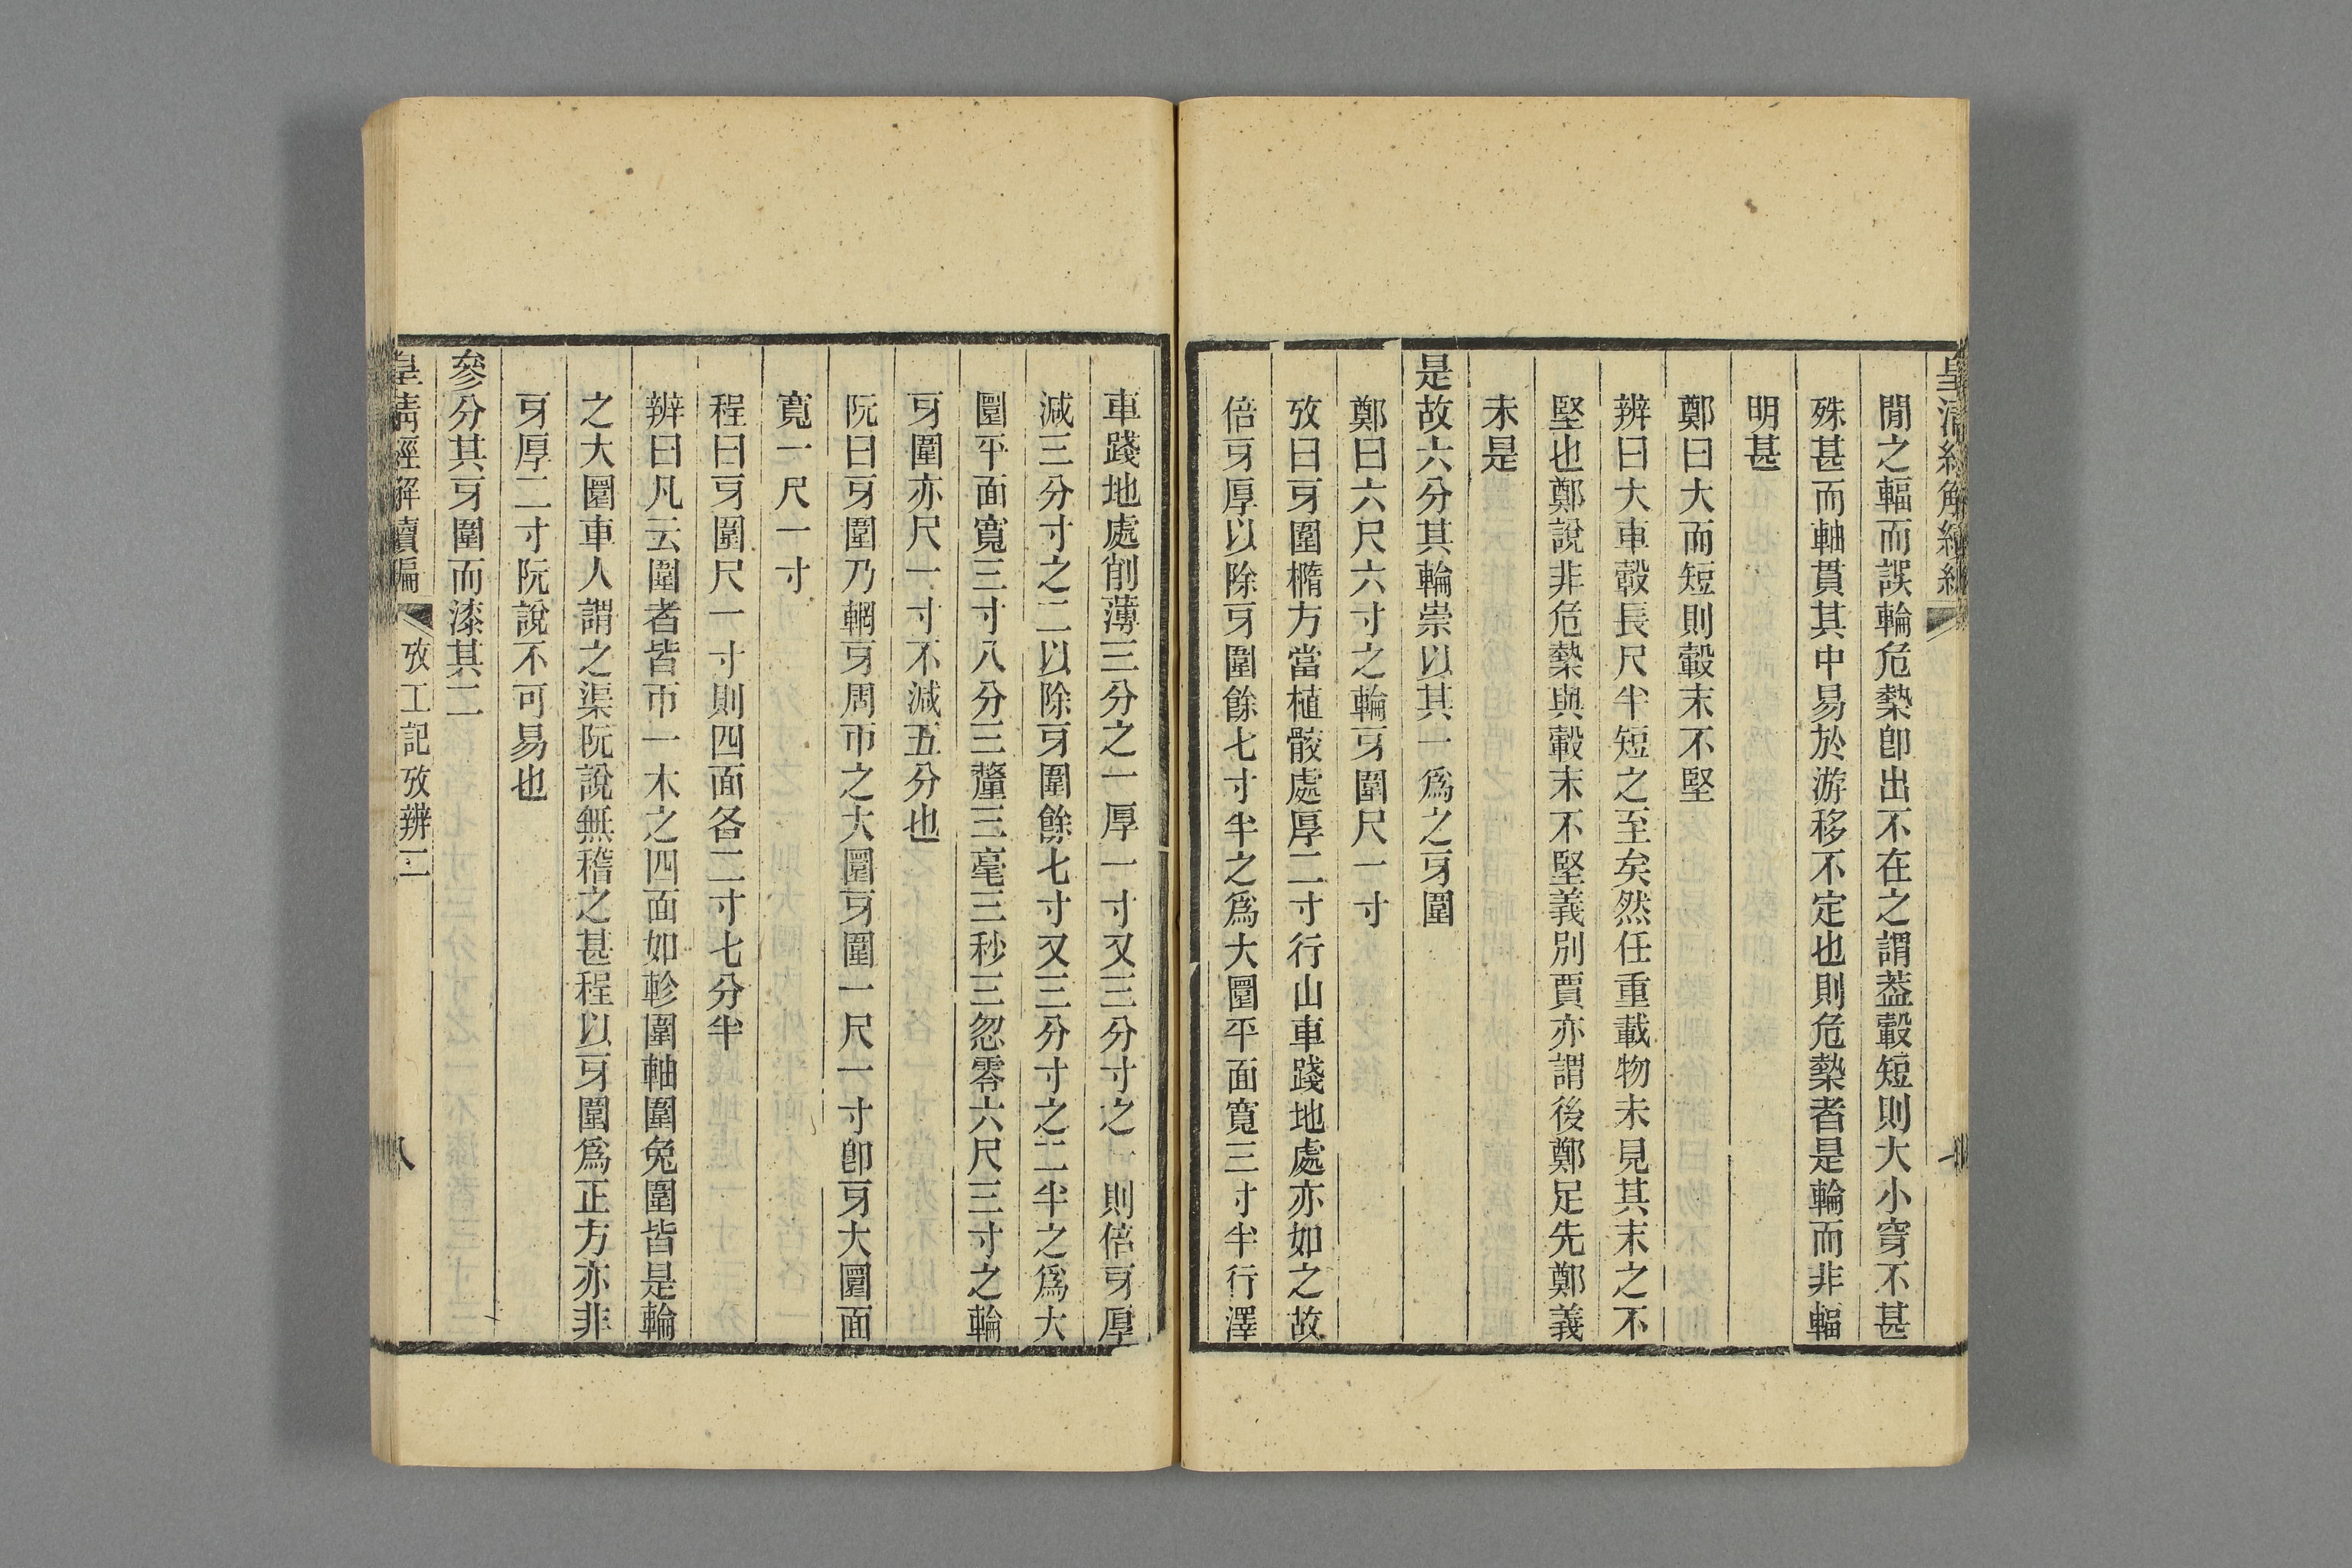 皇清經解續編
閒之輻而誤輪危槷卽出不在之謂葢轂短則大小穿不甚
殊甚而軸貫其中易於游移不定也則危槷者是輪而非輻
明甚
鄭曰大而短則轂末不堅
辨曰大車轂長尺半短之至矣然任重載物未見其末之不
堅也鄭說非危槷與轂末不堅義別賈亦謂後鄭足先鄭義
未是
是故六分其輪崇以其一爲之牙圍
鄭曰六尺六寸之輪牙圍尺一寸
攷曰牙圍橢方當植骹處厚二寸行山車踐地處亦如之故
倍牙厚以除牙圍餘七寸半之爲大圜平面寬三寸半行澤
車踐地處削薄三分之一厚一寸又三分寸之一則倍牙厚
減三分寸之二以除牙圍餘七寸又三分寸之二半之爲大
圜平面寬三寸八分三釐三毫三秒三忽零六尺三寸之輪
牙圍亦尺一寸不減五分也
阮曰牙圍乃輞牙周帀之大圜牙圍一尺一寸卽牙大圜面
寬一尺一寸
程曰牙圍尺一寸則四面各二寸七分半
辨曰凡云圍者皆帀一木之四面如軫圍軸圍兔圍皆是輪
之大圜車人謂之渠阮說無稽之甚程以牙圍爲正方亦非
牙厚二寸阮說不可易也
參分其牙圍而漆其二
皇清經解續編 攷工記攷辨二 八